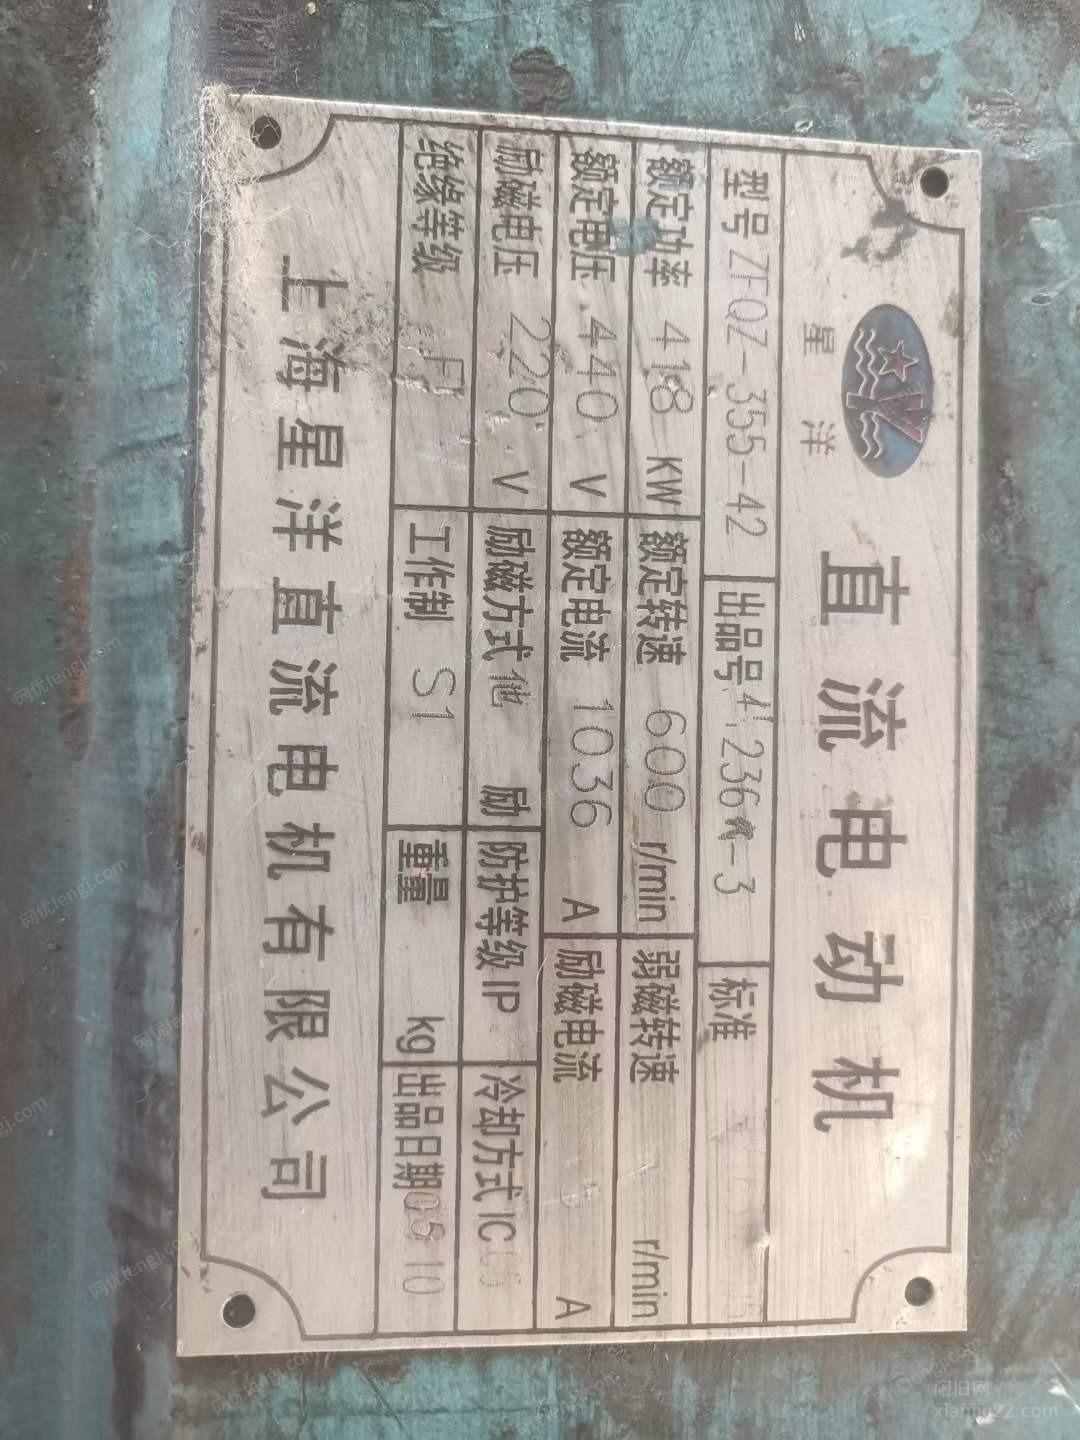 星洋 直流电动机
型号 ZFQZ-355-42 出品号 236 -3 标准
额定功率 418 KW 额定转速 600 r/min 弱磁转速 r/min
额定电压 440 V 额定电流 1036 A 励磁电流 A
励磁电压 220 V 励磁方式 他 励 防护等级 IP 冷却方式 IC06
绝缘等级 F 工作制 S1 重量 kg 出品日期 10
上海星洋直流电机有限公司
闲旧网
xianjiu22.com
网优fengj.com